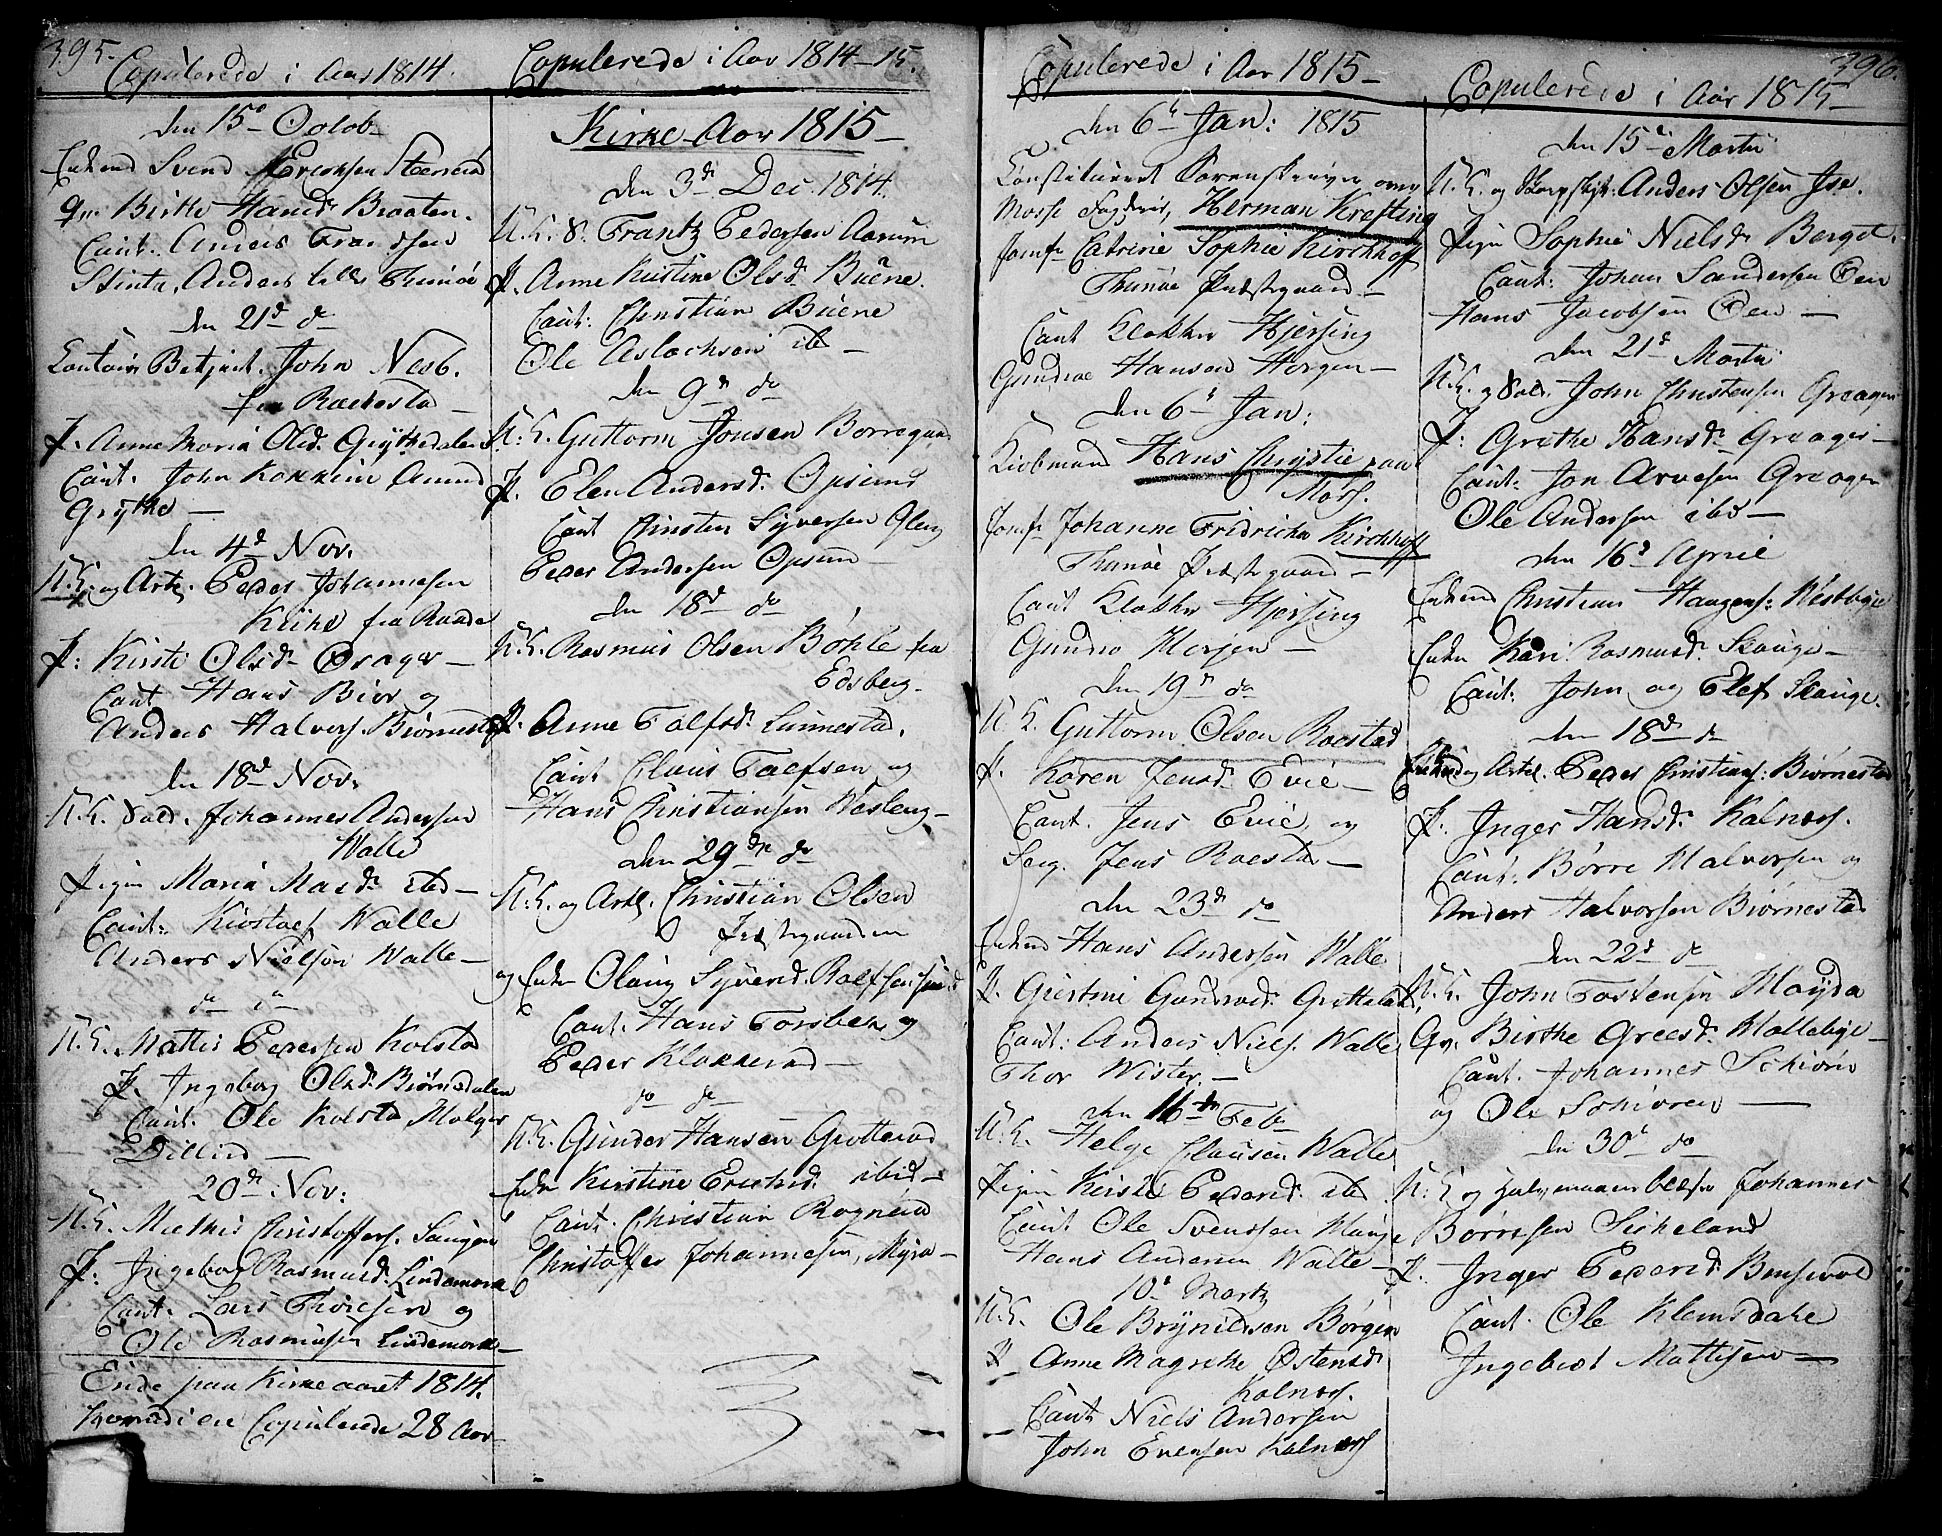 395.
Copulerede i Aar 1814.
den 15d Octob.
Enkemd Svend Ericksen Steneröd
Qv. Birthe Hansd. Braaten.
Caut. Anders Frandsen
Stinta, Anders Thunöe
den 21d do
Contoir Betjent John Nesb.
fra Rackestad
P. Anne Maria Olsd. Grythedalen
Caut. John Kokkim Amund
Grythe —
den 4d Nov.
U.K. og Artl. Peder Johannesen
Kiihe fra Raade
P. Kirsti Olsd. Orager —
Caut Hans Biör og
Anders Halvors. Biörnestad
den 18d Nov.
U.K. Sold. Johannes Andersen
Walle
Pigen Maria Masd. ibid —
Caut. Kiostaef Walle
Anders Nielsen Walle —
do do
U.K. Mattis Pedersen Kolstad
P. Ingeborg Olsd. Biörnsdalen
Caut. Ole Kolstad Holger
Dilliöd —
20d Nov:
U.K. Mathis Christoffers. Saugen
P: Ingebor Rasmusd. Lindemork
Caut. Lars Thoresen og
Ole Rasmusen Lindemork —
Ende paa Kirkeaaret 1814.
hvori di ere Copulerede 28 Par —
Copulerede i Aar 1814 — 15.
Kirke-Aar 1815 —
den 3d Dec. 1814.
U.K. S. Frantz Pedersen Aarum
P. Anne Kistine Olsd. Buene.
Caut: Christian Buene
Ole Aslachsen ib —
den 9d do
U.K. Guttorm Jonsen Borregaard
P. Elen Andersd. Opsund
Caut Christen Syversen Gleng
Peder Andersen Opsund —
den 18d do
U.K. Rasmus Olsen Böhle fra
Edsberg.
P. Anne Tolfsd. Lunnestad.
Caut Claus Tolfsen og
Hans Christiansen Wesleng —
den 29d do
U.K. og Artl. Christian Olsen
Præstegaarden
og Enke Olaug Syversd. Rolfsensund
Caut. Hans Torsbek og
Peder Klokkerød —
do do
U.K. Gunder Hansen Grotteröd
Enke Kirstine Ericksd. ibid —
Caut. Christian Rogneröd
Christoffer Johannesen, Myra —
Copulerede i Aar 1815 —
den 6d Jan: 1815
Constitueret Sorenskriver over
Mosse Fogderie, Herman Krefting
Jomfr Catrine Sophie Kirchhoff
Thunöe Præstegaard —
Caut Klokker Hjersing
Gundroe Hansen Horgen —
den 6d Jan:
Kiöbmand Hans Christie paa
Moss.
Jomfr Johanne Fridricha Kirchhoff
Thunöe Præstegaard —
Caut Klokker Hjorsing
Gundro Horjen —
den 19d do
U.K. Guttorm Olsen Roestad
P. Karen Jensd. Evie —
Caut. Jens Evie, og
Serg. Jens Roestad —
den 23d do
Enkemd Hans Andersen Walle
P. Giertine Gundersd. Grotteröd
Caut: Anders Niels. Walle
Thor Wister —
den 16d Feb.
U.K. Helge Clausen Walle
Pigen Kersti Pedersd. ibd
Caut Ole Svensen Hauge
Hans Andersen Walle —
10d Martz
U.K. Ole Brynildsen Börgen
P. Anne Magrethe Östensd.
Kalnæss.
Caut Niels Andersen
John Evensen Kalnæss
396.
Copulerede i Aar 1815 —
den 15d Martii
U.K. og Anders Olsen Ise.
Pigen Sophie Nielsd. Berget.
Caut: Johan Sandersen Öen
Hans Jacobsen Öen —
den 21d Martii
U.K. og Sold. John Christensen Greager
P: Grethe Hansd. Greager —
Caut: Jon Arnesen Greager
Ole Andersen ibd —
den 16d April
Enkemd Christian Haagens: Westbye
Enken Kari Rasmusd. Skauge —
Caut. John og Elef Skauge.
den 18d do
Enkemd og Artl. Peder Christians: Biörnestad
P. Inger Hansd. Kalnæss.
Caut: Börre Halvorsen og
Anders Halvorsen Biörnestad
den 22d do
U.K. John Tostensen Höyda
Qv. Birthe Greesd. Hallebye —
Caut. Johannes Schiörn
og Ole Schioren —
den 30d do
U.K. og Johannes
Börresen Sikeland
P. Inger Pedersd. Bensevold
Caut. Ole Klemsdahl
Ingebret Mattisen —